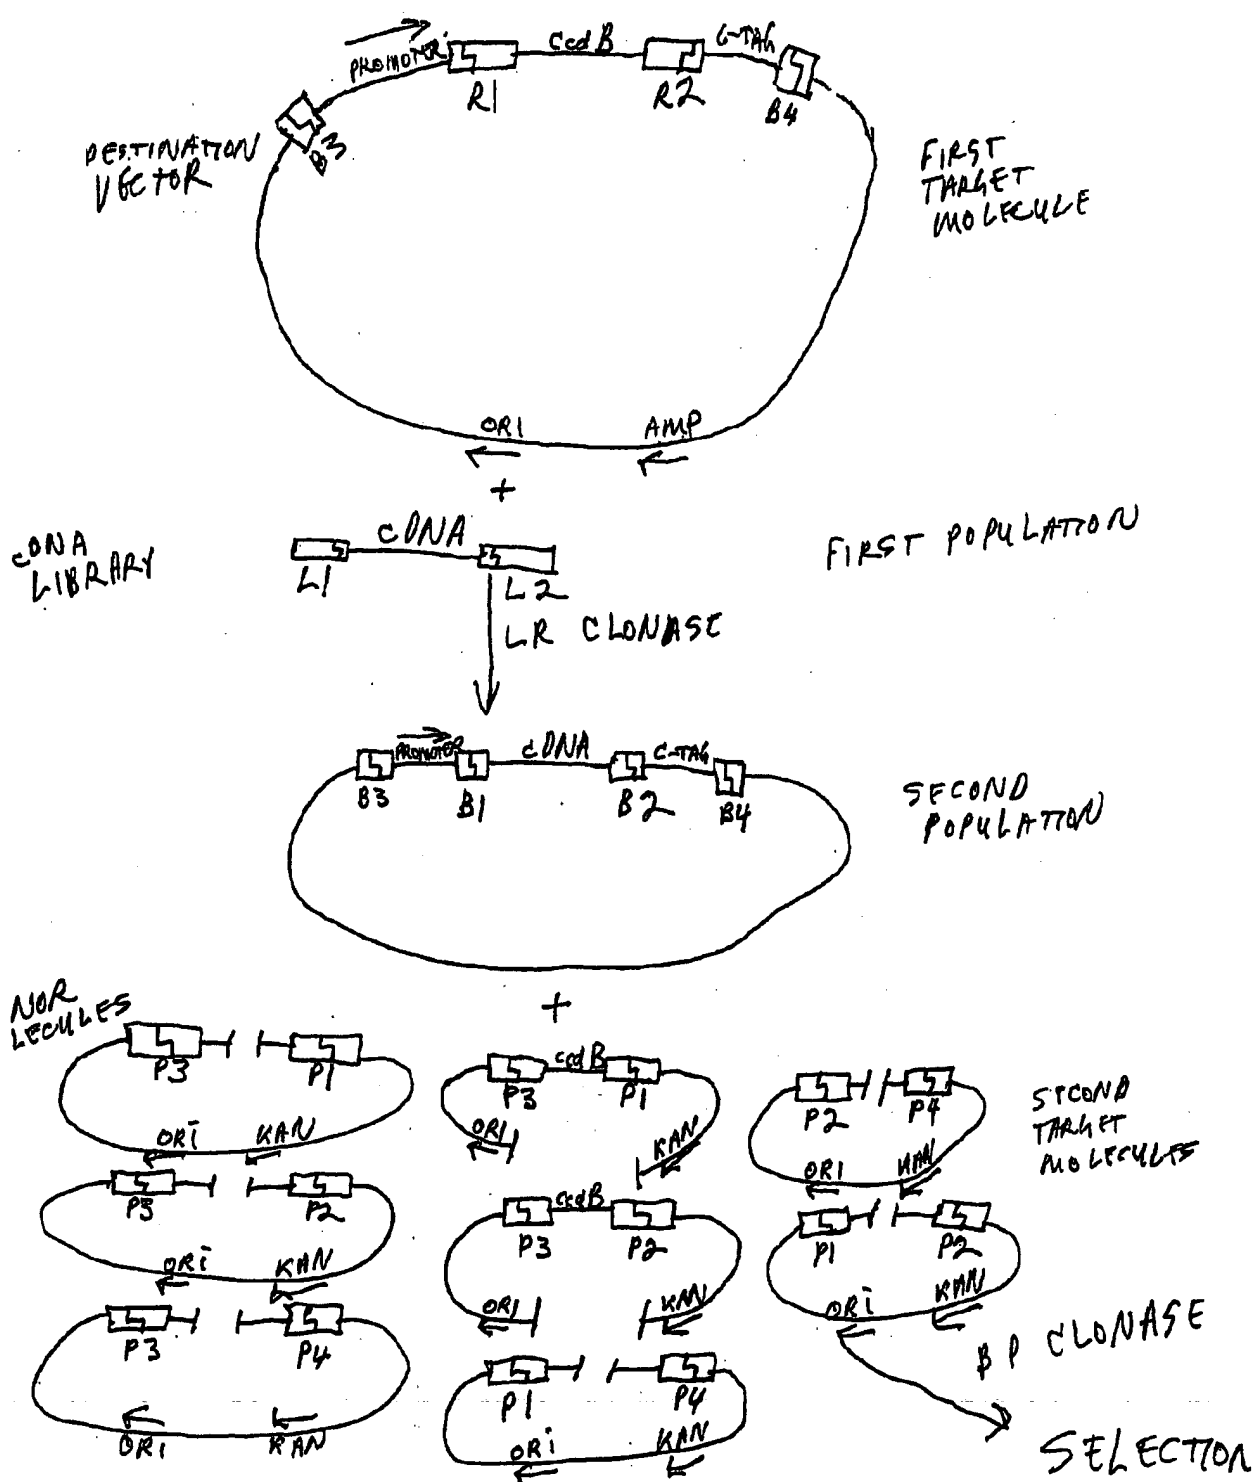 PROMOTER
R1
CcdB
R2
C-TAG
B4
B3
DESTINATION
VECTOR
FIRST
TARGET
MOLECULE
ORI
AMP
+
cDNA
LIBRARY
L1
cDNA
L2
FIRST POPULATION
LR CLONASE
B3
PROMOTER
B1
cDNA
B2
C-TAG
B4
SECOND
POPULATION
+
NOR
LECULES
P3
P1
ORI
KAN
P3
ccdB
P1
ORI
KAN
P2
P4
ORI
KAN
SECOND
TARGET
MOLECULES
P3
P2
ORI
KAN
P3
ccdB
P2
ORI
KAN
P1
P2
ORI
KAN
P3
P4
ORI
KAN
P1
P4
ORI
KAN
BP CLONASE
SELECTION